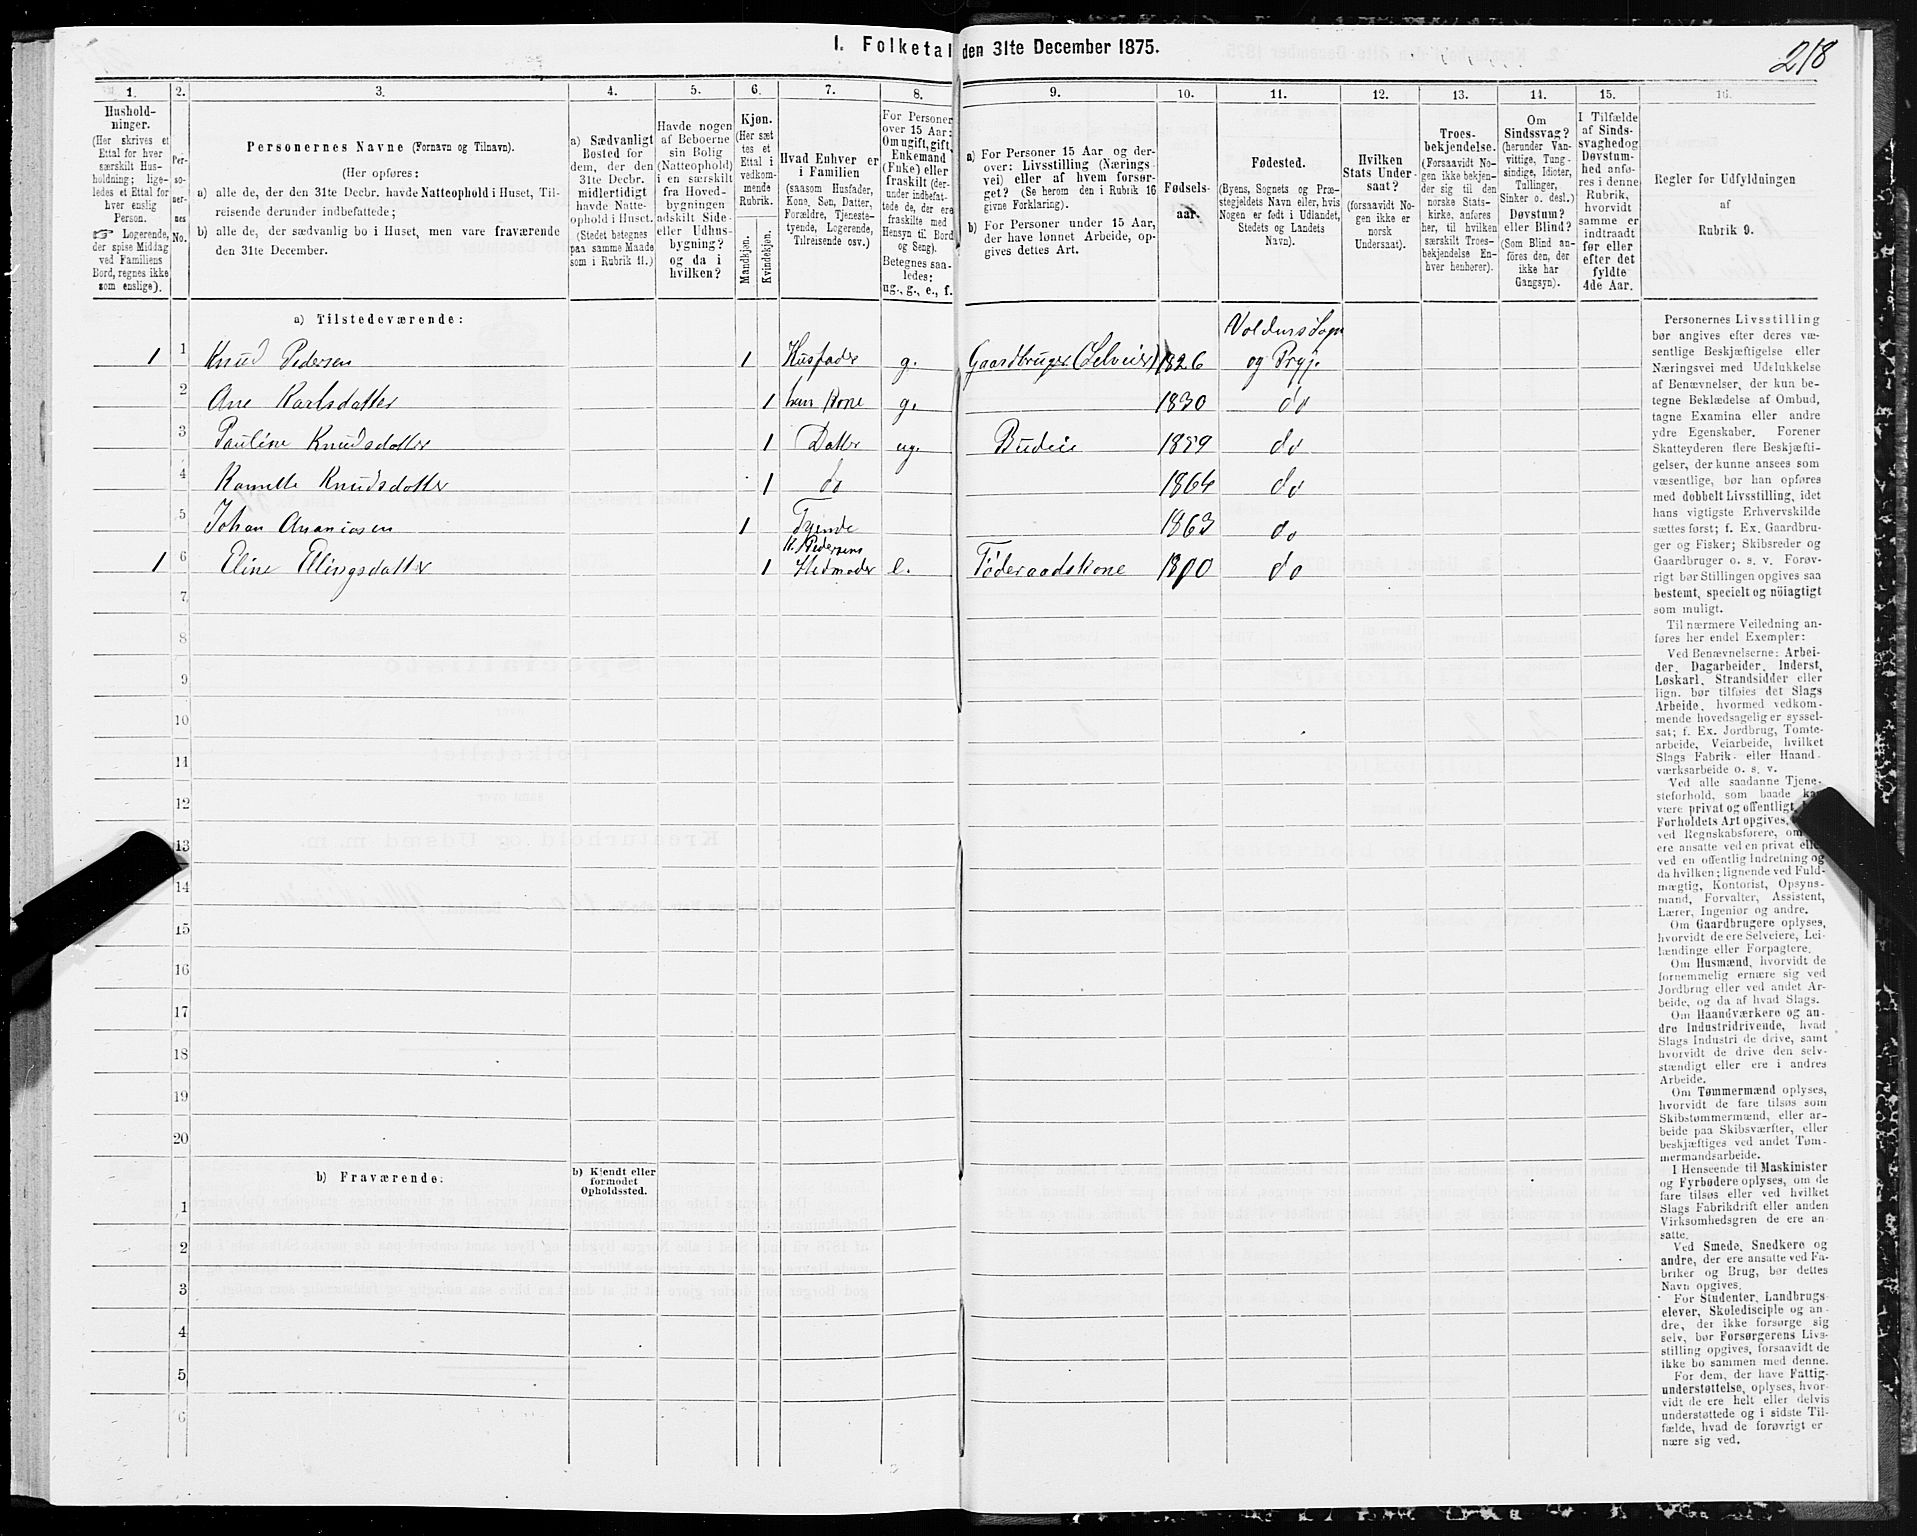 I. Folketal den 31te December 1875.
218
1.
2.
3.
4.
5.
6.
7.
8.
9.
10.
11.
12.
13.
14.
15.
16.
Hushold-
ninger.
(Her skrives et
Ettal for hver
særskilt Hus-
holdning; lige-
ledes et Ettal for
hver enslig
Person.
☞ Logerende,
der spise Middag
ved Familiens
Bord, regnes ikke
som enslige).
Per-
so-
ner-
nes
No.
Personernes Navne (Fornavn og Tilnavn).
(Her opføres:
a) alle de, der den 31te Decbr. havde Natteophold i Huset, Til-
reisende derunder indbefattede;
b) alle de, der sædvanlig bo i Huset, men vare fraværende
den 31te December.
a) Sædvanligt
Bosted for
dem, der den
31te Decbr.
midlertidigt
havde Natte-
ophold i Huset.
(Stedet betegnes
paa samme Maade
som i Rubrik 11.)
Havde nogen
af Beboerne
sin Bolig
(Natteophold)
i en særskilt
fra Hoved-
bygningen
adskilt Side-
eller Udhus-
bygning?
og da i
hvilken?
Kjøn.
(Her sæt-
tes et
Ettal i
vedkom-
mende
Rubrik.
Mandkjøn.
Kvindekjøn.
Hvad Enhver er
i Familien
(saasom Husfader,
Kone, Søn, Datter,
Forældre, Tjeneste-
tyende, Logerende,
Tilreisende osv.)
For Personer
over 15 Aar:
Om ugift, gift,
Enkemand
(Enke) eller
fraskilt (der-
under indbefat-
tede de, der ere
fraskilte med
Hensyn til Bord
og Seng).
Betegnes saa-
ledes:
ug., g., e., f.
a) For Personer 15 Aar og der-
over: Livsstilling (Nærings-
vei) eller af hvem forsør-
get? (Se herom den i Rubrik 16
givne Forklaring).
b) For Personer under 15 Aar,
der have lønnet Arbeide, op-
gives dettes Art.
Fødsels-
aar.
Fødested.
(Byens, Sognets og Præ-
stegjeldets Navn eller, hvis
Nogen er født i Udlandet,
Stedets og Landets
Navn).
Hvilken
Stats Under-
saat?
(forsaavidt No-
gen ikke er
norsk
Undersaat).
Troes-
bekjendelse.
(Forsaavidt No-
gen ikke bekjen-
der sig til den
norske Stats-
kirke, anføres
her, til hvilken
særskilt Troes-
bekjendelse En-
hver henhører).
Om
Sindssvag?
(herunder Van-
vittige, Tung-
sindige, Idioter,
Tullinger,
Sinker o. desl.)
Døvstum?
eller Blind?
(Som Blind an-
føres den, der
ikke har
Gangsyn).
I Tilfælde
af Sinds-
svaghed og
Døvstum-
hed anfø-
res i denne
Rubrik,
hvorvidt
samme er
indtraadt
før eller
efter det
fyldte
4de Aar.
Regler for Udfyldningen
af
Rubrik 9.
a) Tilstedeværende:
Volden Sogn
1 1 Knud Pedersen 1 Husfader g. Gaardbruger (Selveier) 1826 og Prgj.
2 Ane Karlsdatter 1 hans Kone g. 1830 do
3 Pauline Knudsdatter 1 Datter ug. Budeie 1859 do
4 Kamelle Knudsdatter 1 do 1864 do
5 Johan Ananiasen 1 Tyende 1863 do
K. Pedersens
1 6 Eline Ellingsdatter 1 Stedmoder e. Føderaadskone 1800 do
7
8
9
10
11
12
13
14
15
16
17
18
19
20
b) Fraværende:
b) Kjendt eller
formodet
Opholdssted.
1
2
3
4
5
6
Personernes Livsstilling
bør angives efter deres væ-
sentlige Beskjæftigelse eller
Næringsvei med Udelukkelse
af Benævnelser, der kun be-
tegne Beklædelse af Ombud,
tagne Examina eller andre
ydre Egenskaber. Forener
Skatteyderen flere Beskjæfti-
gelser, der kunne ansees som
væsentlige, bør han opføres
med dobbelt Livsstilling, idet
hans vigtigste Erhvervskilde
sættes først; f. Ex. Gaardbru-
ger og Fisker; Skibsreder og
Gaardbruger o. s. v. Forøv-
rigt bør Stillingen opgives saa
bestemt, specielt og nöiagtigt
som muligt.
Til nærmere Veiledning an-
føres her endel Exempler:
Ved Benævnelserne: Arbei-
der, Dagarbeider, Inderst,
Løskarl, Strandsidder eller
lign. bør tilføies det Slags
Arbeide, hvormed vedkom-
mende hovedsagelig er syssel-
sat; f. Ex. Jordbrug, Tomte-
arbeide, Veiarbeide, hvilket
Slags Fabrik- eller Haand-
værksarbeide o. s. v.
Ved alle saadanne Tjene-
steforhold, som baade kan
være privat og offentligt,
Forholdets Art opgives,
ved Regnskabsførere, om
ere ansatte ved en privat eller
ved en offentlig Indretning og
da hvilken; lignende ved Fuld-
mægtig, Kontorist, Opsyns-
mand, Forvalter, Assistent,
Lærer, Ingeniør og andre.
Om Gaardbrugere oplyses,
hvorvidt de ere Selveiere, Lei-
lændinge eller Forpagtere.
Om Husmænd, hvorvidt de
fornemmelig ernære sig ved
Jordbrug eller ved andet Ar-
beide, og da af hvad Slags.
Om Haandværkere og an-
dre Industridrivende, hvad
Slags Industri de drive, samt
hvorvidt de drive den selv-
stændigt eller ere i andres
Arbeide.
Om Tømmermænd oplyses,
hvorvidt de fare tilsøs som
Skibstømmermænd, eller ar-
beide paa Skibsværfter, eller
beskjæftiges ved andet Tøm-
mermandsarbeide.
I Henseende til Maskinister
og Fyrbødere oplyses, om de
fare tilsøs eller ved hvilket
Slags Fabrikdrift eller anden
Virksomhedsgren de ere an-
satte.
Ved Smede, Snedkere og
andre, der ere ansatte ved Fa-
briker og Brug, bør dettes
Navn opgives.
For Studenter, Landbrugs-
elever, Skoledisciple og an-
dre, der ikke forsørge sig
selv, bør Forsørgerens Livs-
stilling opgives, forsaavidt de
ikke bo sammen med denne.
For dem, der have Fattig-
understøttelse, oplyses, hvor-
vidt de ere helt eller delvis
understøttede og i sidste Til-
fælde, hvad de forøvrigt er-
nære sig ved.